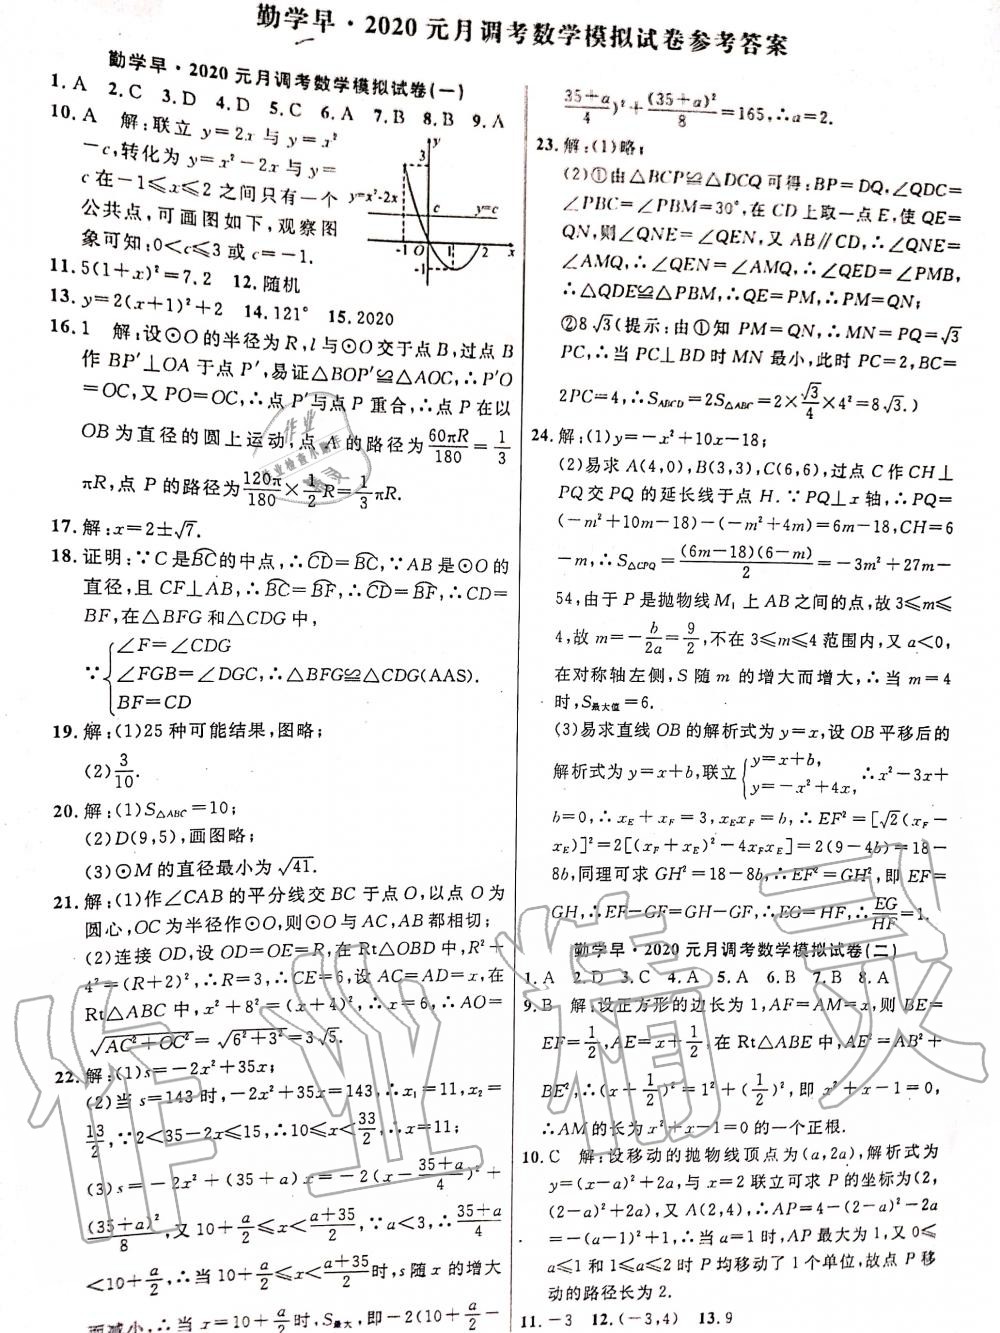 勤学早·2020元月调考数学模拟试卷参考答案
勤学早·2020元月调考数学模拟试卷(一)
1. A 2. C 3. D 4. D 5. C 6. A 7. B 8. B 9. A
10. A 解:联立 y=2x 与 y=x²
-c,转化为 y=x²-2x 与 y=
c 在 -1≤x≤2 之间只有一个
公共点,可画图如下,观察图
象可知:0<c≤3 或 c=-1.
y
3
y=x²-2x
c
y=c
-1 O 1 2 x
-1
11. 5(1+x)²=7.2 12. 随机
13. y=2(x+1)²+2 14. 121° 15. 2020
16. 1 解:设⊙O的半径为R,l与⊙O交于点B,过点B
作 BP′⊥OA 于点 P′,易证△BOP′≌△AOC,∴P′O
=OC,又 PO=OC,∴点 P′与点 P 重合,∴点 P 在以
OB 为直径的圆上运动,点 A 的路径为 60πR/180 = 1/3
πR,点 P 的路径为 120π/180 × 1/2 R = 1/3 πR.
17. 解:x=2±√7.
18. 证明:∵C 是B͡C的中点,∴C͡D=B͡C,∵AB 是⊙O的
直径,且 CF⊥AB,∴B͡C=B͡F,∴C͡D=B͡F,∴CD=
BF,在△BFG 和△CDG 中,
∵ { ∠F=∠CDG
∠FGB=∠DGC,∴△BFG≌△CDG(AAS).
BF=CD
19. 解:(1)25 种可能结果,图略;
(2) 3/10.
20. 解:(1)S△ABC=10;
(2)D(9,5),画图略;
(3)⊙M 的直径最小为 √41.
21. 解:(1)作∠CAB 的平分线交 BC 于点 O,以点 O 为
圆心,OC 为半径作⊙O,则⊙O与 AC,AB 都相切;
(2)连接 OD,设 OD=OE=R,在 Rt△OBD 中,R²+
4²=(R+2)²,∴R=3,∴CE=6,设 AC=AD=x,在
Rt△ABC 中,x²+8²=(x+4)²,∴x=6,∴AO=
√(AC²+OC²)=√(6²+3²)=3√5.
22. 解:(1)s=-2x²+35x;
(2)当 s=143 时,-2x²+35x=143,∴x₁=11,x₂=
13/2,∵2<35-2x≤15,∴10≤x<33/2,∴x=11;
(3)s=-2x²+(35+a)x=-2(x-(35+a)/4)²+
(35+a)²/8,又 10+a/2≤x<(a+35)/2,∵a<3,∴(35+a)/4
<10+a/2,∴当 10+a/2≤x<(a+35)/2时,s随x的增大
而减小,∴当 x=10+a/2 时,S最大,即-2(10+a/2-
(35+a)/4)²+(35+a)²/8=165,∴a=2.
23. 解:(1)略;
(2)①由△BCP≌△DCQ 可得:BP=DQ,∠QDC=
∠PBC=∠PBM=30°,在 CD 上取一点 E,使 QE=
QN,则∠QNE=∠QEN,又 AB∥CD,∴∠QNE=
∠AMQ,∴∠QEN=∠AMQ,∴∠QED=∠PMB,
∴△QDE≌△PBM,∴QE=PM,∴PM=QN;
②8√3(提示:由①知 PM=QN,∴MN=PQ=√3
PC,∴当 PC⊥BD 时 MN 最小,此时 PC=2,BC=
2PC=4,∴SABCD=2S△ABC=2×√3/4×4²=8√3.)
24. 解:(1)y=-x²+10x-18;
(2)易求 A(4,0),B(3,3),C(6,6),过点 C 作 CH⊥
PQ 交 PQ 的延长线于点 H.∵PQ⊥x 轴,∴PQ=
(-m²+10m-18)-(-m²+4m)=6m-18,CH=6
-m,∴S△CPQ=(6m-18)(6-m)/2=-3m²+27m-
54,由于 P 是抛物线 M₁ 上 AB 之间的点,故 3≤m≤
4,故 m=-b/2a=9/2,不在 3≤m≤4 范围内,又 a<0,
在对称轴左侧,S 随 m 的增大而增大,∴当 m=4
时,S最大值=6.
(3)易求直线 OB 的解析式为 y=x,设 OB 平移后的
解析式为 y=x+b,联立 { y=x+b, y=-x²+4x, ∴x²-3x+
b=0,∴xE+xF=3,xExF=b,∴EF²=[√2(xF-
xE)]²=2[(xF+xE)²-4xFxE]=2(9-4b)=18-
8b,同理可求 GH²=18-8b,∴EF²=GH²,即 EF=
GH,∴EF-GF=GH-GF,∴EG=HF,∴EG/HF=1.
勤学早·2020元月调考数学模拟试卷(二)
1. A 2. D 3. C 4. A 5. A 6. B 7. B 8. A
9. B 解:设正方形的边长为 1,AF=AM=x,则 BE=
EF=1/2,AE=x+1/2,在 Rt△ABE 中,AE²=AB²+
BE²,∴(x+1/2)²=1²+(1/2)²,即 x²+x-1=0,
∴AM 的长为 x²+x-1=0 的一个正根.
10. C 解:设移动的抛物线顶点为(a,2a),解析式为
y=(x-a)²+2a,与 x=2 联立可求 P 的坐标为(2,
(2-a)²+2a),又 A(2,4),∴AP=4-(2-a)²-2a=
-(a-1)²+1,∴当 a=1 时,AP 最大为 1,又 0≤
a≤1 和 1≤a≤2 时 P 均移动了 1 个单位,故点 P 移
动的路径长为 2.
11. -3 12. (-3,4) 13. 9
作业精灵